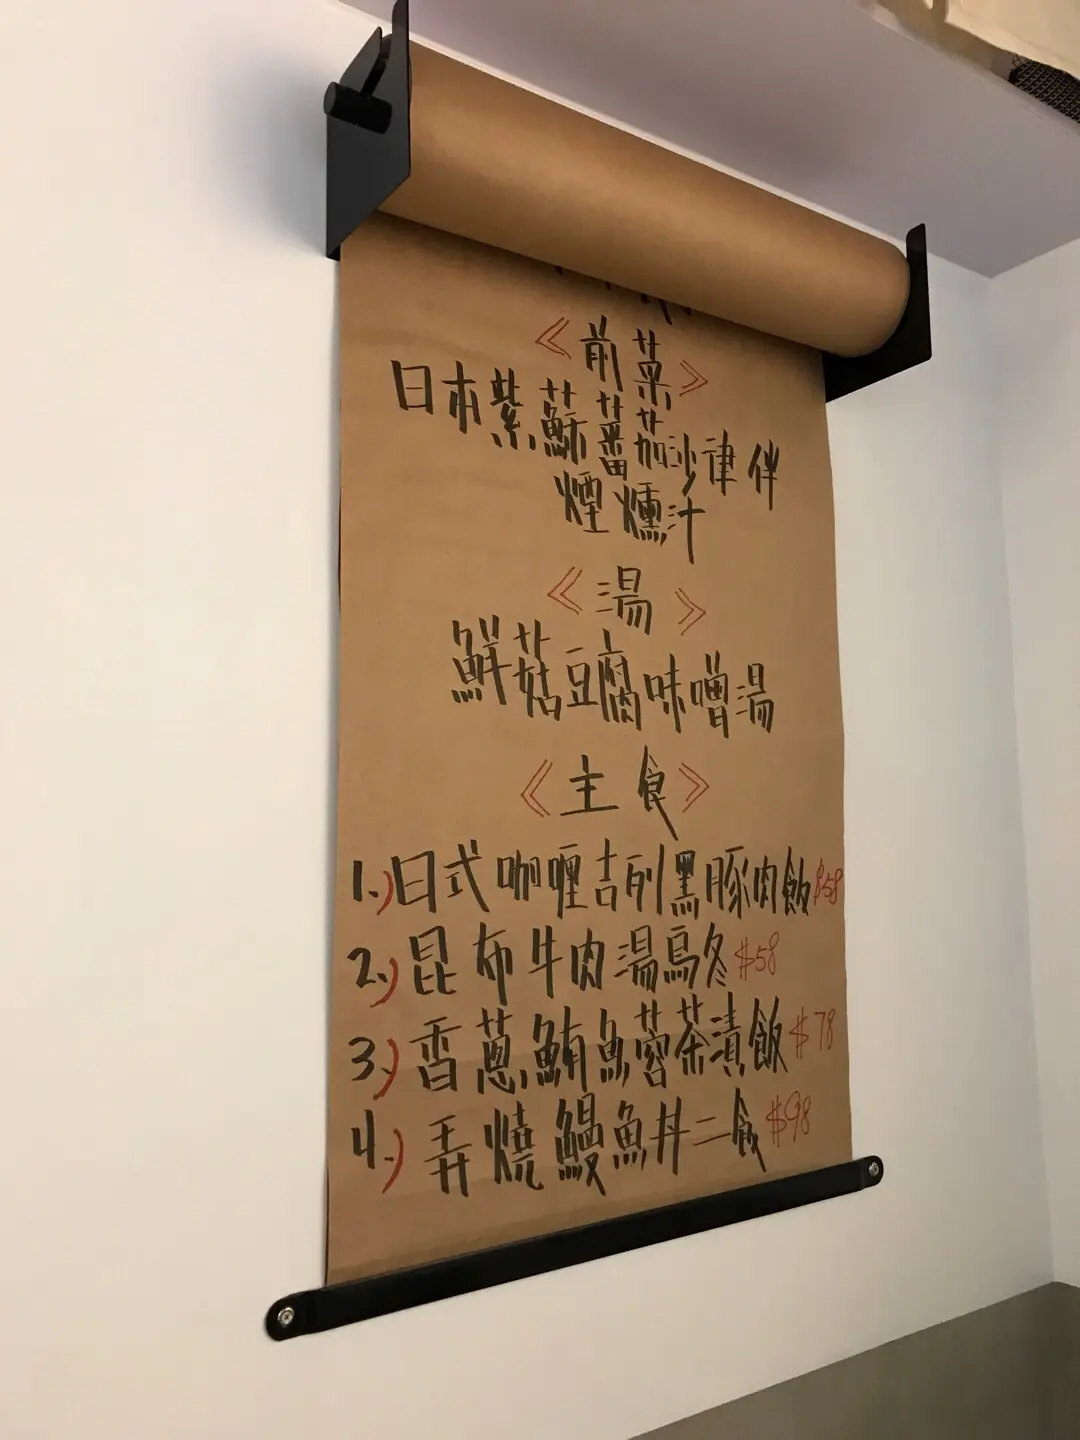 《前菜》
日本紫蘇蕃茄沙律伴
煙燻汁
《湯》
鮮菇豆腐味噌湯
《主食》
1.)日式咖喱吉列黑豚肉飯$58
2.)昆布牛肉湯烏冬$58
3.)香蔥鮪魚蓉茶漬飯$78
4.)弄燒鰻魚丼二食$98